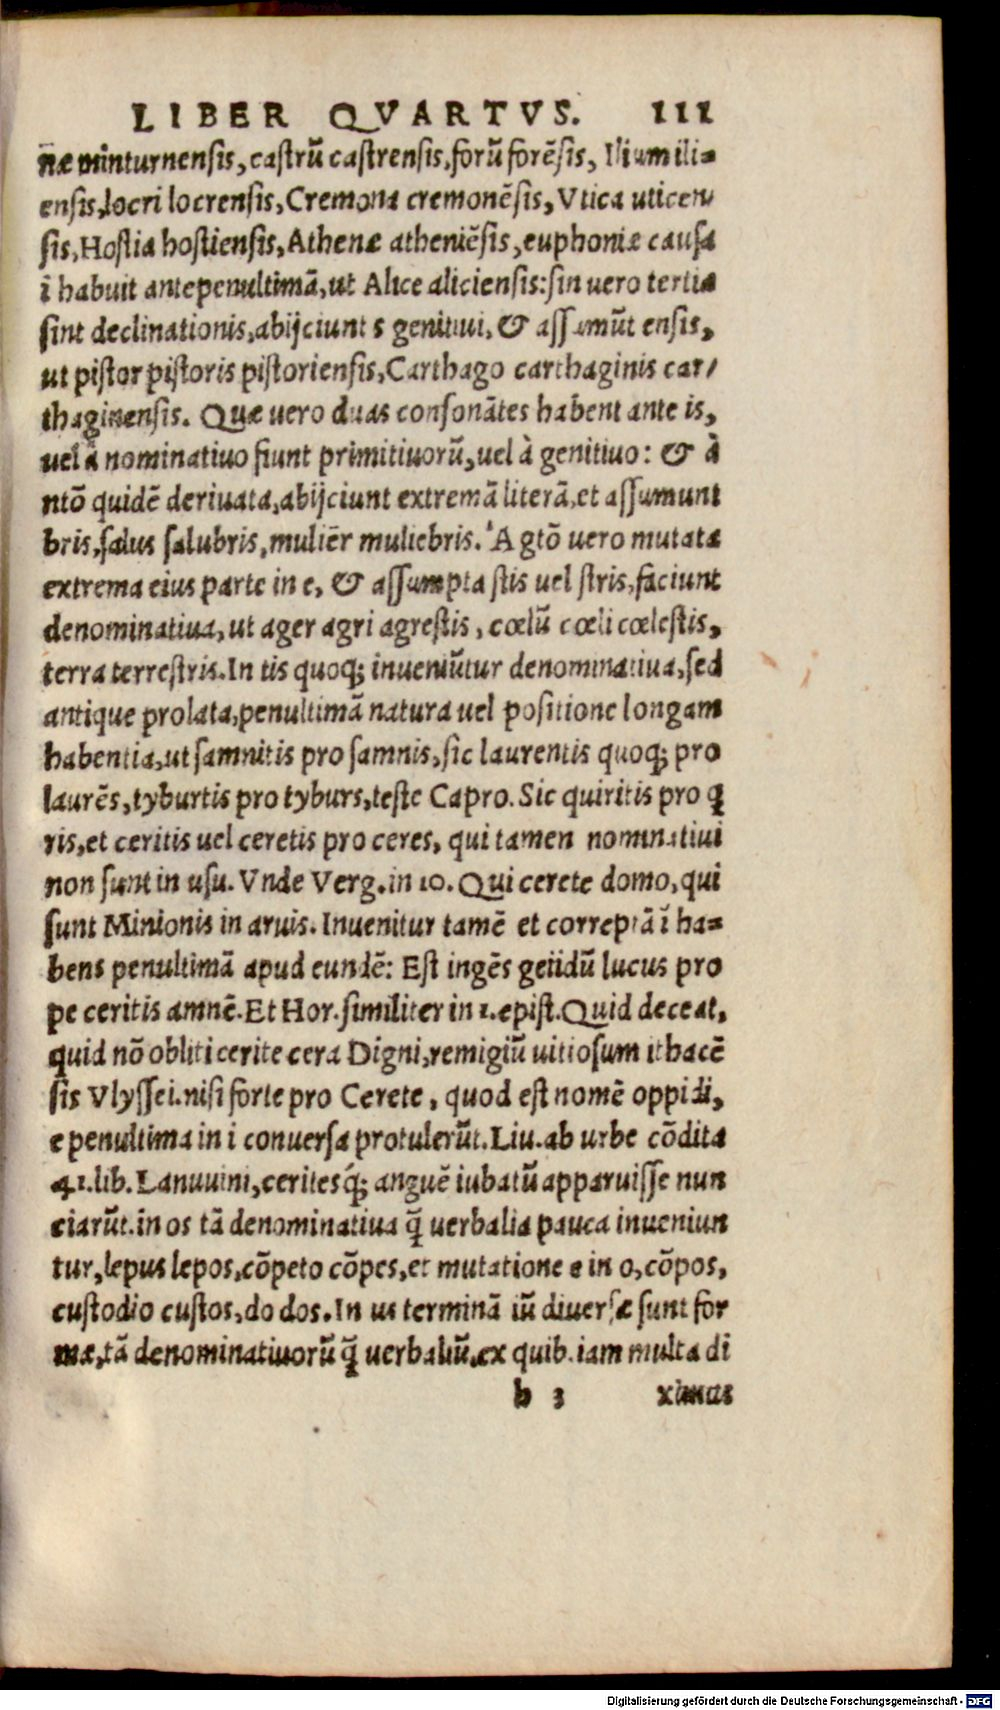 LIBER QVARTVS. 111
n̄æ minturnensis, castrū castrensis, forū forēsis, Ilium ili-
ensis, locri locrensis, Cremona cremonēsis, Vtica uticen/
sis, Hostia hostiensis, Athenæ atheniēsis, euphoniæ causa
ī habuit antepenultimā, ut Alice aliciensis: sin uero tertiæ
sint declinationis, abijciunt s genitiui, & assumūt ensis,
ut pistor pistoris pistoriensis, Carthago carthaginis car/
thaginensis. Quæ uero duas consonātes habent ante is,
uel à nominatiuo fiunt primitiuorū, uel à genitiuo: & à
ntō quidē deriuata, abijciunt extremā literā, et assumunt
bris, salus salubris, muliēr muliebris. A gtō uero mutata
extrema eius parte in e, & assumpta stis uel stris, faciunt
denominatiua, ut ager agri agrestis, cœlū cœli cœlestis,
terra terrestris. In tis quoq; inueniūtur denominatiua, sed
antique prolata, penultimā natura uel positione longam
habentia, ut samnitis pro samnis, sic laurentis quoq; pro
laurēs, tyburtis pro tyburs, teste Capro. Sic quiritis pro q̄
ris, et ceritis uel ceretis pro ceres, qui tamen nominatiui
non sunt in usu. Vnde Verg. in 10. Qui cerete domo, qui
sunt Minionis in aruis. Inuenitur tamē et correptā ī ha-
bens penultimā apud eundē: Est ingēs gelidū lucus pro
pe ceritis amnē. Et Hor. similiter in 1. epist. Quid deceat,
quid nō obliti cerite cera Digni, remigiū uitiosum ithacē
sis Vlyssei. nisi forte pro Cerete, quod est nomē oppidi,
e penultima in i conuersa protulerūt. Liu. ab urbe cōdita
41. lib. Lanuuini, ceritesq́; anguē iubatū apparuisse nun
ciarūt. in os tā denominatiua q̄ uerbalia pauca inueniun
tur, lepus lepos, cōpeto cōpes, et mutatione e in o, cōpos,
custodio custos, do dos. In us terminā iū diuersæ sunt for
mæ, tā denominatiuorū q̄ uerbaliū. ex quib. iam multa di
b 3 ximus
Digitalisierung gefördert durch die Deutsche Forschungsgemeinschaft - DFG